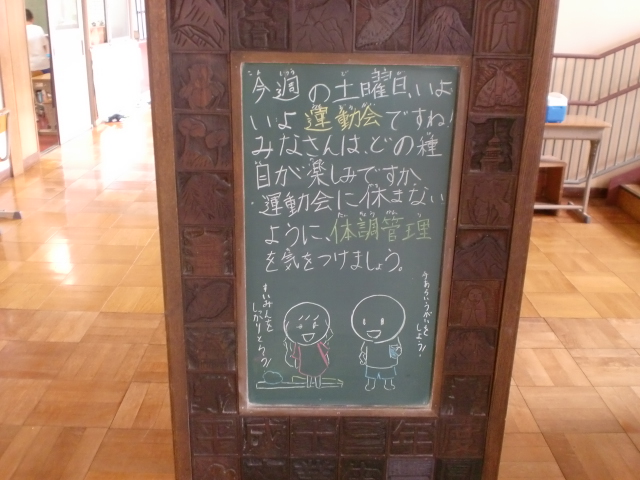 今週の土曜日、いよ
いよ運動会ですね!
みなさんは、どの種
目が楽しみですか。
運動会に休まない
ように、体調管理
を気をつけましょう。
すいみんを
しっかりとろう!
手あらいうがいをしよう!